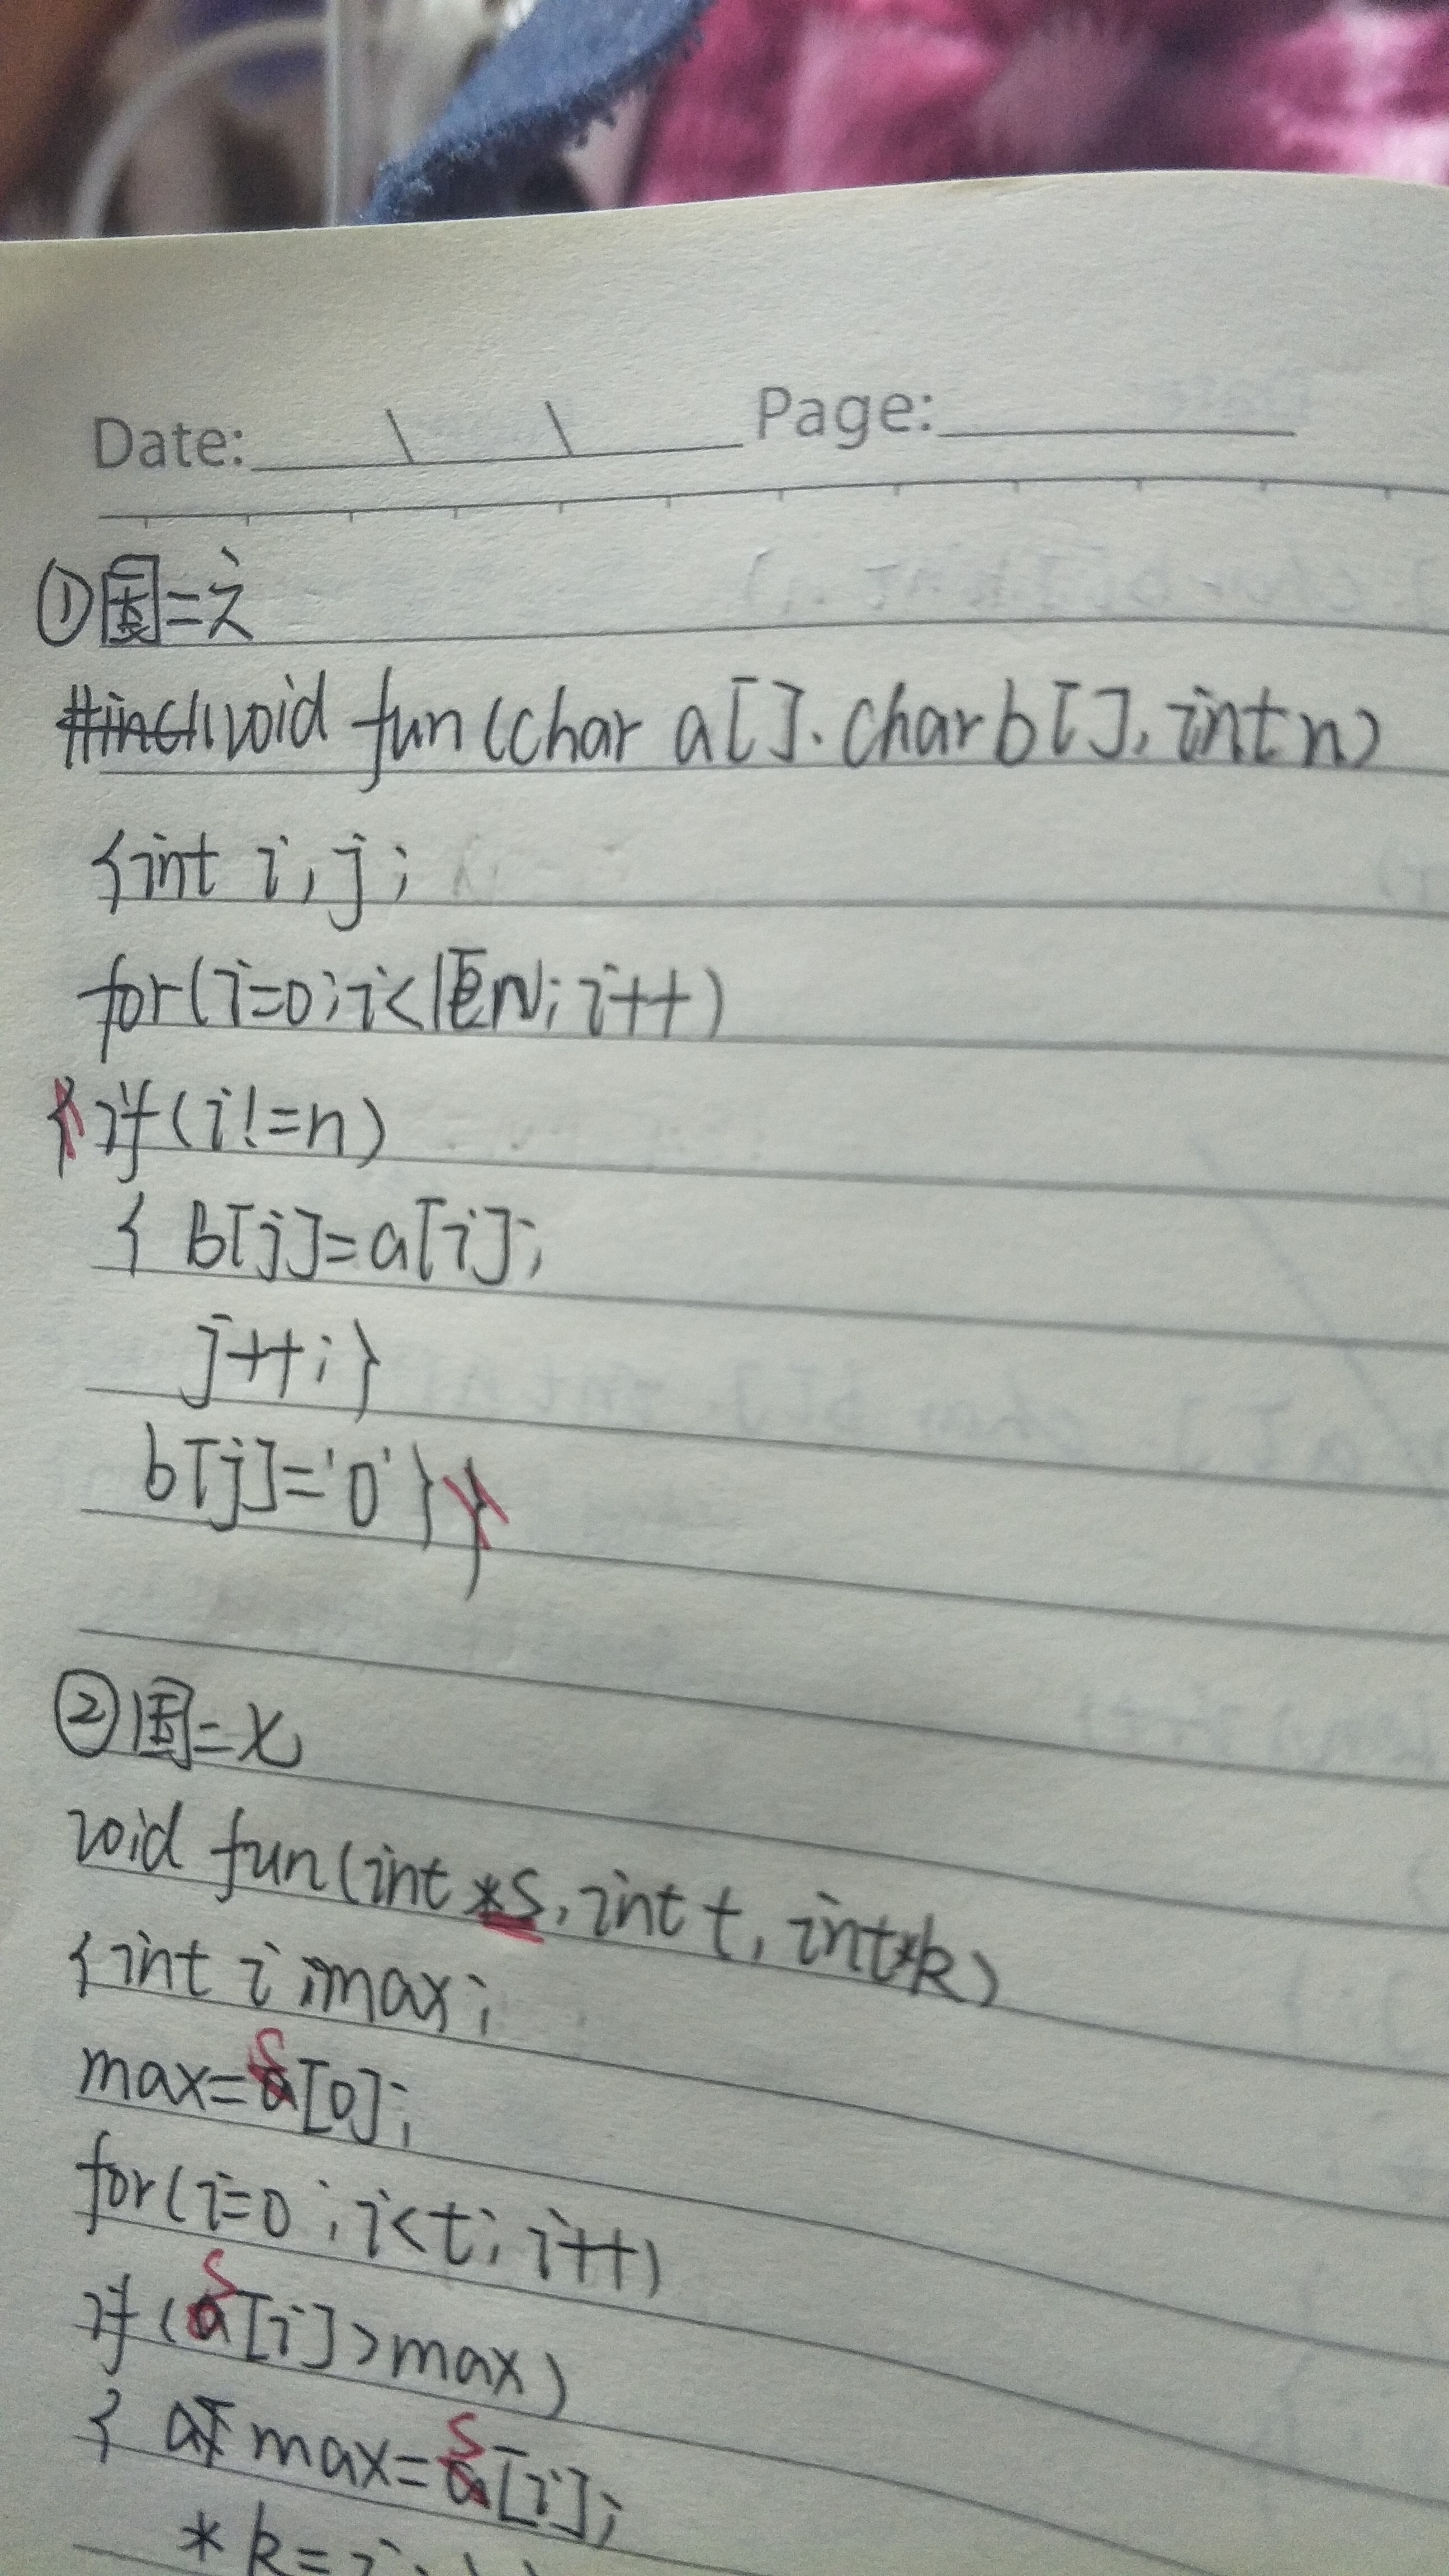 Date: \ \ Page:
① 国=
void fun(char a[]. char b[], int n)
{int i, j;
for(i=0;i<LEN;i++)
{if(i!=n)
{ b[j]=a[i];
j++;}
b[j]='0'}}
② 国=
void fun(int *s, int t, int*k)
{int i,max;
max=s[0];
for(i=0;i<t;i++)
if(s[i]>max)
{ max=s[i];
*k=i;